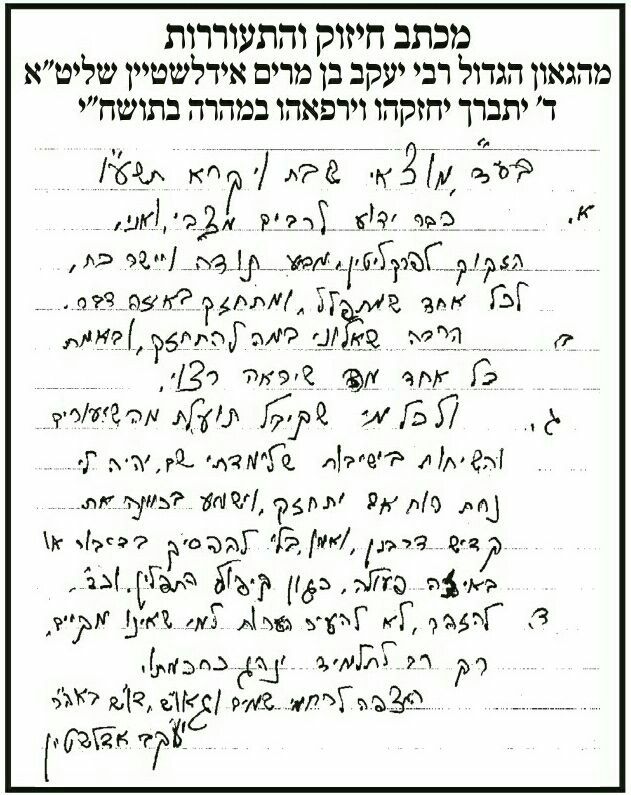 מכתב חיזוק והתעוררות
מהגאון הגדול רבי יעקב בן מרים אידלשטיין שליט"א
ד' יתברך יחזקהו וירפאהו במהרה בתושח"י
בע"ד, מוצאי שבת ויקרא תשע"ו
א. כבר ידוע לרבים מצבי, ואני,
הזקוק לפרקליטין, מביע תודה ויישר כח,
לכל אחד שמתפלל, ומתחזק באיזה דבר.
ב. הרבה שאלוני במה להתחזק, ובאמת
כל אחד מה שיראה רצוי,
ג. ולכל מי שקיבל תועלת מהשיעורים
והשיחות בישיבות שלימדתי שם, יהיה לי
נחת רוח אם יתחזק, וישמע בכוונה את
קדיש דרבנן, ואמן, בלי להפסיק בדיבור או
באיזה פעולה, כגון קיפול התפלין, וכד',
ד. להזהר, לא להעיר הערות למי שאינו מקיים,
רק רב לתלמיד ינהג כחכמתו,
המצפה לרחמי שמים
יעקב אדלשטין